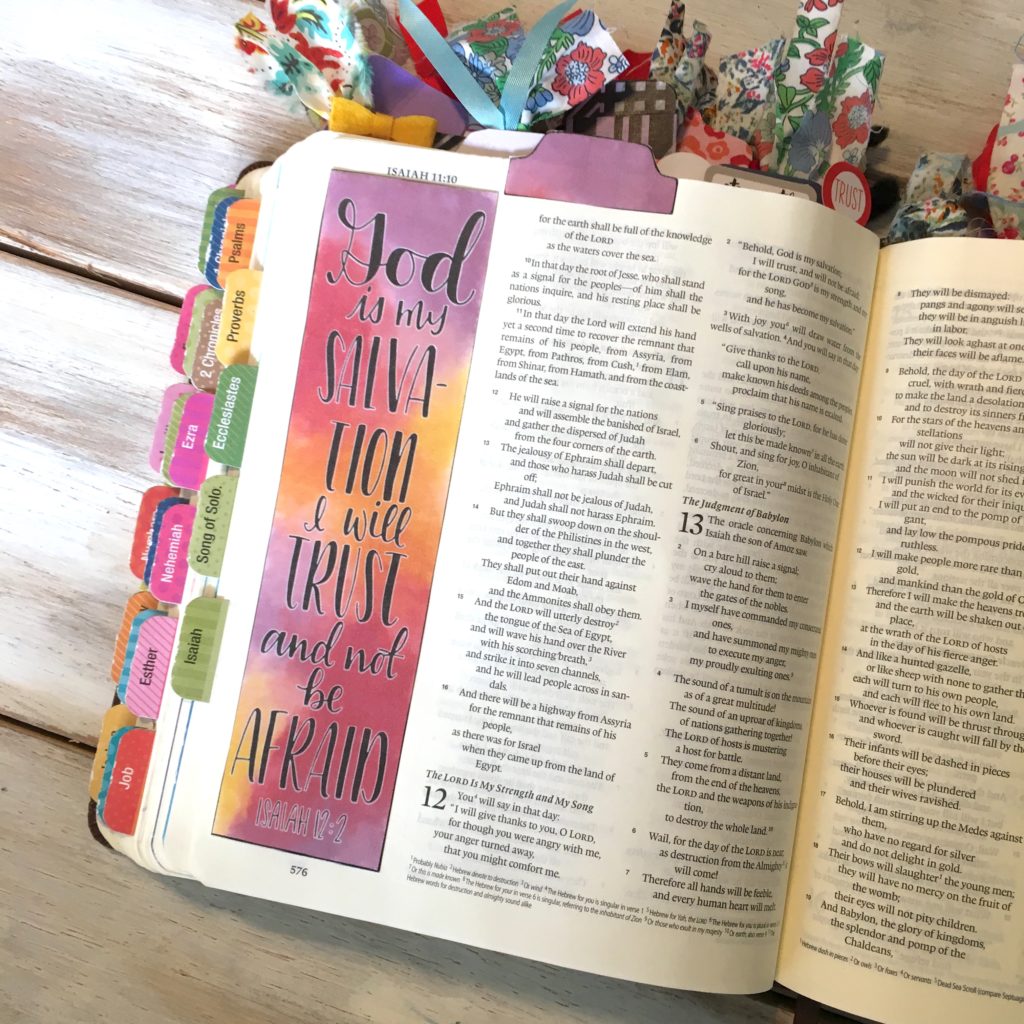 Psalms
Proverbs
2 Chronicles
Ecclesiastes
Ezra
Song of Solo.
Nehemiah
Isaiah
Esther
Job
TRUST
ISAIAH 11:10
God
is my
SALVA-
TION
I will
TRUST
and not
be
AFRAID
ISAIAH 12:2
576
for the earth shall be full of the knowledge
of the LORD
as the waters cover the sea.
10 In that day the root of Jesse, who shall stand
as a signal for the peoples—of him shall the
nations inquire, and his resting place shall be
glorious.
11 In that day the Lord will extend his hand
yet a second time to recover the remnant that
remains of his people, from Assyria, from
Egypt, from Pathros, from Cush,1 from Elam,
from Shinar, from Hamath, and from the coast-
lands of the sea.
12 He will raise a signal for the nations
and will assemble the banished of Israel,
and gather the dispersed of Judah
from the four corners of the earth.
13 The jealousy of Ephraim shall depart,
and those who harass Judah shall be cut
off;
Ephraim shall not be jealous of Judah,
and Judah shall not harass Ephraim.
14 But they shall swoop down on the shoul-
der of the Philistines in the west,
and together they shall plunder the
people of the east.
They shall put out their hand against
Edom and Moab,
and the Ammonites shall obey them.
15 And the LORD will utterly destroy2
the tongue of the Sea of Egypt,
and will wave his hand over the River
with his scorching breath,3
and strike it into seven channels,
and he will lead people across in san-
dals.
16 And there will be a highway from Assyria
for the remnant that remains of his
people,
as there was for Israel
when they came up from the land of
Egypt.
The LORD Is My Strength and My Song
12 You4 will say in that day:
"I will give thanks to you, O LORD,
for though you were angry with me,
your anger turned away,
that you might comfort me.
2 "Behold, God is my salvation;
I will trust, and will not be afraid;
for the LORD GOD5 is my strength and my
song,
and he has become my salvation."
3 With joy you6 will draw water from the
wells of salvation. 4 And you will say in that day:
"Give thanks to the LORD,
call upon his name,
make known his deeds among the peoples,
proclaim that his name is exalted.
5 "Sing praises to the LORD, for he has done
gloriously;
let this be made known7 in all the earth.
6 Shout, and sing for joy, O inhabitant of
Zion,
for great in your8 midst is the Holy One
of Israel."
The Judgment of Babylon
13 The oracle concerning Babylon which
Isaiah the son of Amoz saw.
2 On a bare hill raise a signal;
cry aloud to them;
wave the hand for them to enter
the gates of the nobles.
3 I myself have commanded my consecrated
ones,
and have summoned my mighty men
to execute my anger,
my proudly exulting ones.9
4 The sound of a tumult is on the mountains
as of a great multitude!
The sound of an uproar of kingdoms,
of nations gathering together!
The LORD of hosts is mustering
a host for battle.
5 They come from a distant land,
from the end of the heavens,
the LORD and the weapons of his indigna-
tion,
to destroy the whole land.10
6 Wail, for the day of the LORD is near;
as destruction from the Almighty
will come!
7 Therefore all hands will be feeble,
and every human heart will melt.
1 Probably Nubia 2 Hebrew devote to destruction 3 Or wind 4 The Hebrew for you is singular in verse 1 5 Hebrew for Yah, the LORD 6 The Hebrew for you is plural in verses
7 Or this is made known 8 The Hebrew for your in verse 6 is singular, referring to the inhabitant of Zion 9 Or those who exult in my majesty 10 Or earth; also verse 9
Hebrew words for destruction and almighty sound alike
They will be dismayed:
pangs and agony will
they will be in anguish
in labor.
They will look aghast at one
their faces will be aflame.
9 Behold, the day of the LORD
cruel, with wrath and
to make the land a desolation
and to destroy its sinners
10 For the stars of the heavens and
stellations
will not give their light;
the sun will be dark at its rising
and the moon will not shed
11 I will punish the world for its
and the wicked for their
I will put an end to the pomp of
gant,
and lay low the pompous pride
ruthless.
12 I will make people more rare than
gold,
and mankind than the gold of
13 Therefore I will make the heavens
and the earth will be shaken
place,
at the wrath of the LORD of hosts
in the day of his fierce anger.
14 And like a hunted gazelle,
or like sheep with none to gather
each will turn to his own people,
and each will flee to his own land.
15 Whoever is found will be thrust through
and whoever is caught will fall by the
sword.
16 Their infants will be dashed in pieces
before their eyes;
their houses will be plundered
and their wives ravished.
17 Behold, I am stirring up the Medes against
them,
who have no regard for silver
and do not delight in gold.
18 Their bows will slaughter the young men;
they will have no mercy on the fruit of
the womb;
their eyes will not pity children.
19 And Babylon, the glory of kingdoms,
the splendor and pomp of the
Chaldeans,
1 Hebrew dash in pieces 2 Or owls 3 Or foxes 4 Or servants 5 Dead Sea Scroll (compare